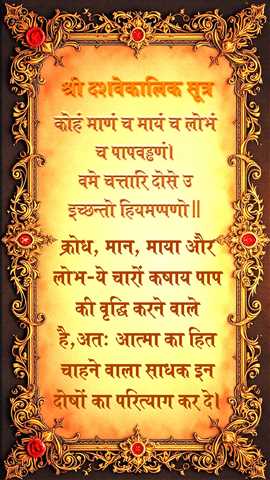 श्री दशवेकालिक सूत्र
कोहं माणं च मायं च लोभं
च पापवड्ढणं।
वमे चत्तारि दोसे उ
इच्छन्तो हियमप्पणो॥
क्रोध, मान, माया और
लोभ-ये चारों कषाय पाप
की वृद्धि करने वाले
है,अतः आत्मा का हित
चाहने वाला साधक इन
दोषों का परित्याग कर दे।